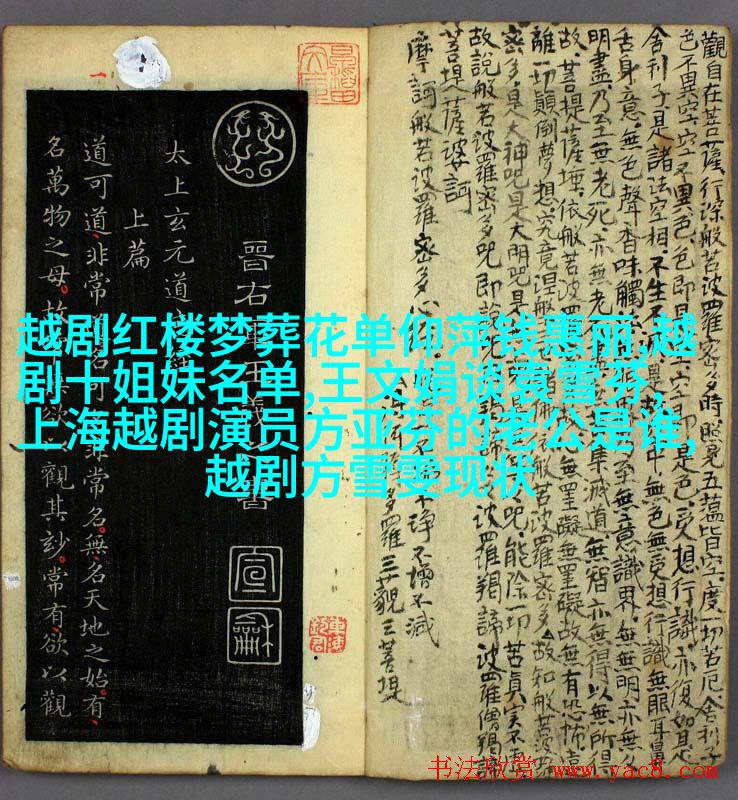 越剧红楼梦葬花单仰萍钱惠丽,越
剧十姐妹名单,王文娟谈袁雪芬,
上海越剧演员方亚芬的老公是谁,
越剧方雪雯现状
觀自在菩薩行深般若波羅密多時照見五蘊皆空度一切苦厄舍利子
色不異空空不異色色即是空空即是色受想行識亦復如是
舍利子是諸法空相不生不滅中無色無受想行識無眼耳鼻
舌身意無色聲香味觸至無意識界無無明亦無
明盡乃至無老死亦無老集滅道無智亦無得以無所得
故菩提薩埵依般若波羅無罣礙無罣礙故無有恐怖遠
離一切顛倒夢想究竟涅般若波羅密多故知般若波
密多是大神咒是大明咒是咒能除一切苦真實不虛
故說般若波羅密多咒即說波羅揭諦波羅僧揭諦
菩提薩婆訶
摩訶般若波羅密多心淨不增不減
多羅三藐三菩提
晉右軍王羲書
宣
龢
太上玄元道
上篇
道可道非常可非常名無名天地之始有
名萬物之母故欲以觀其妙常有欲以觀
书法欣赏 www.yac8.com